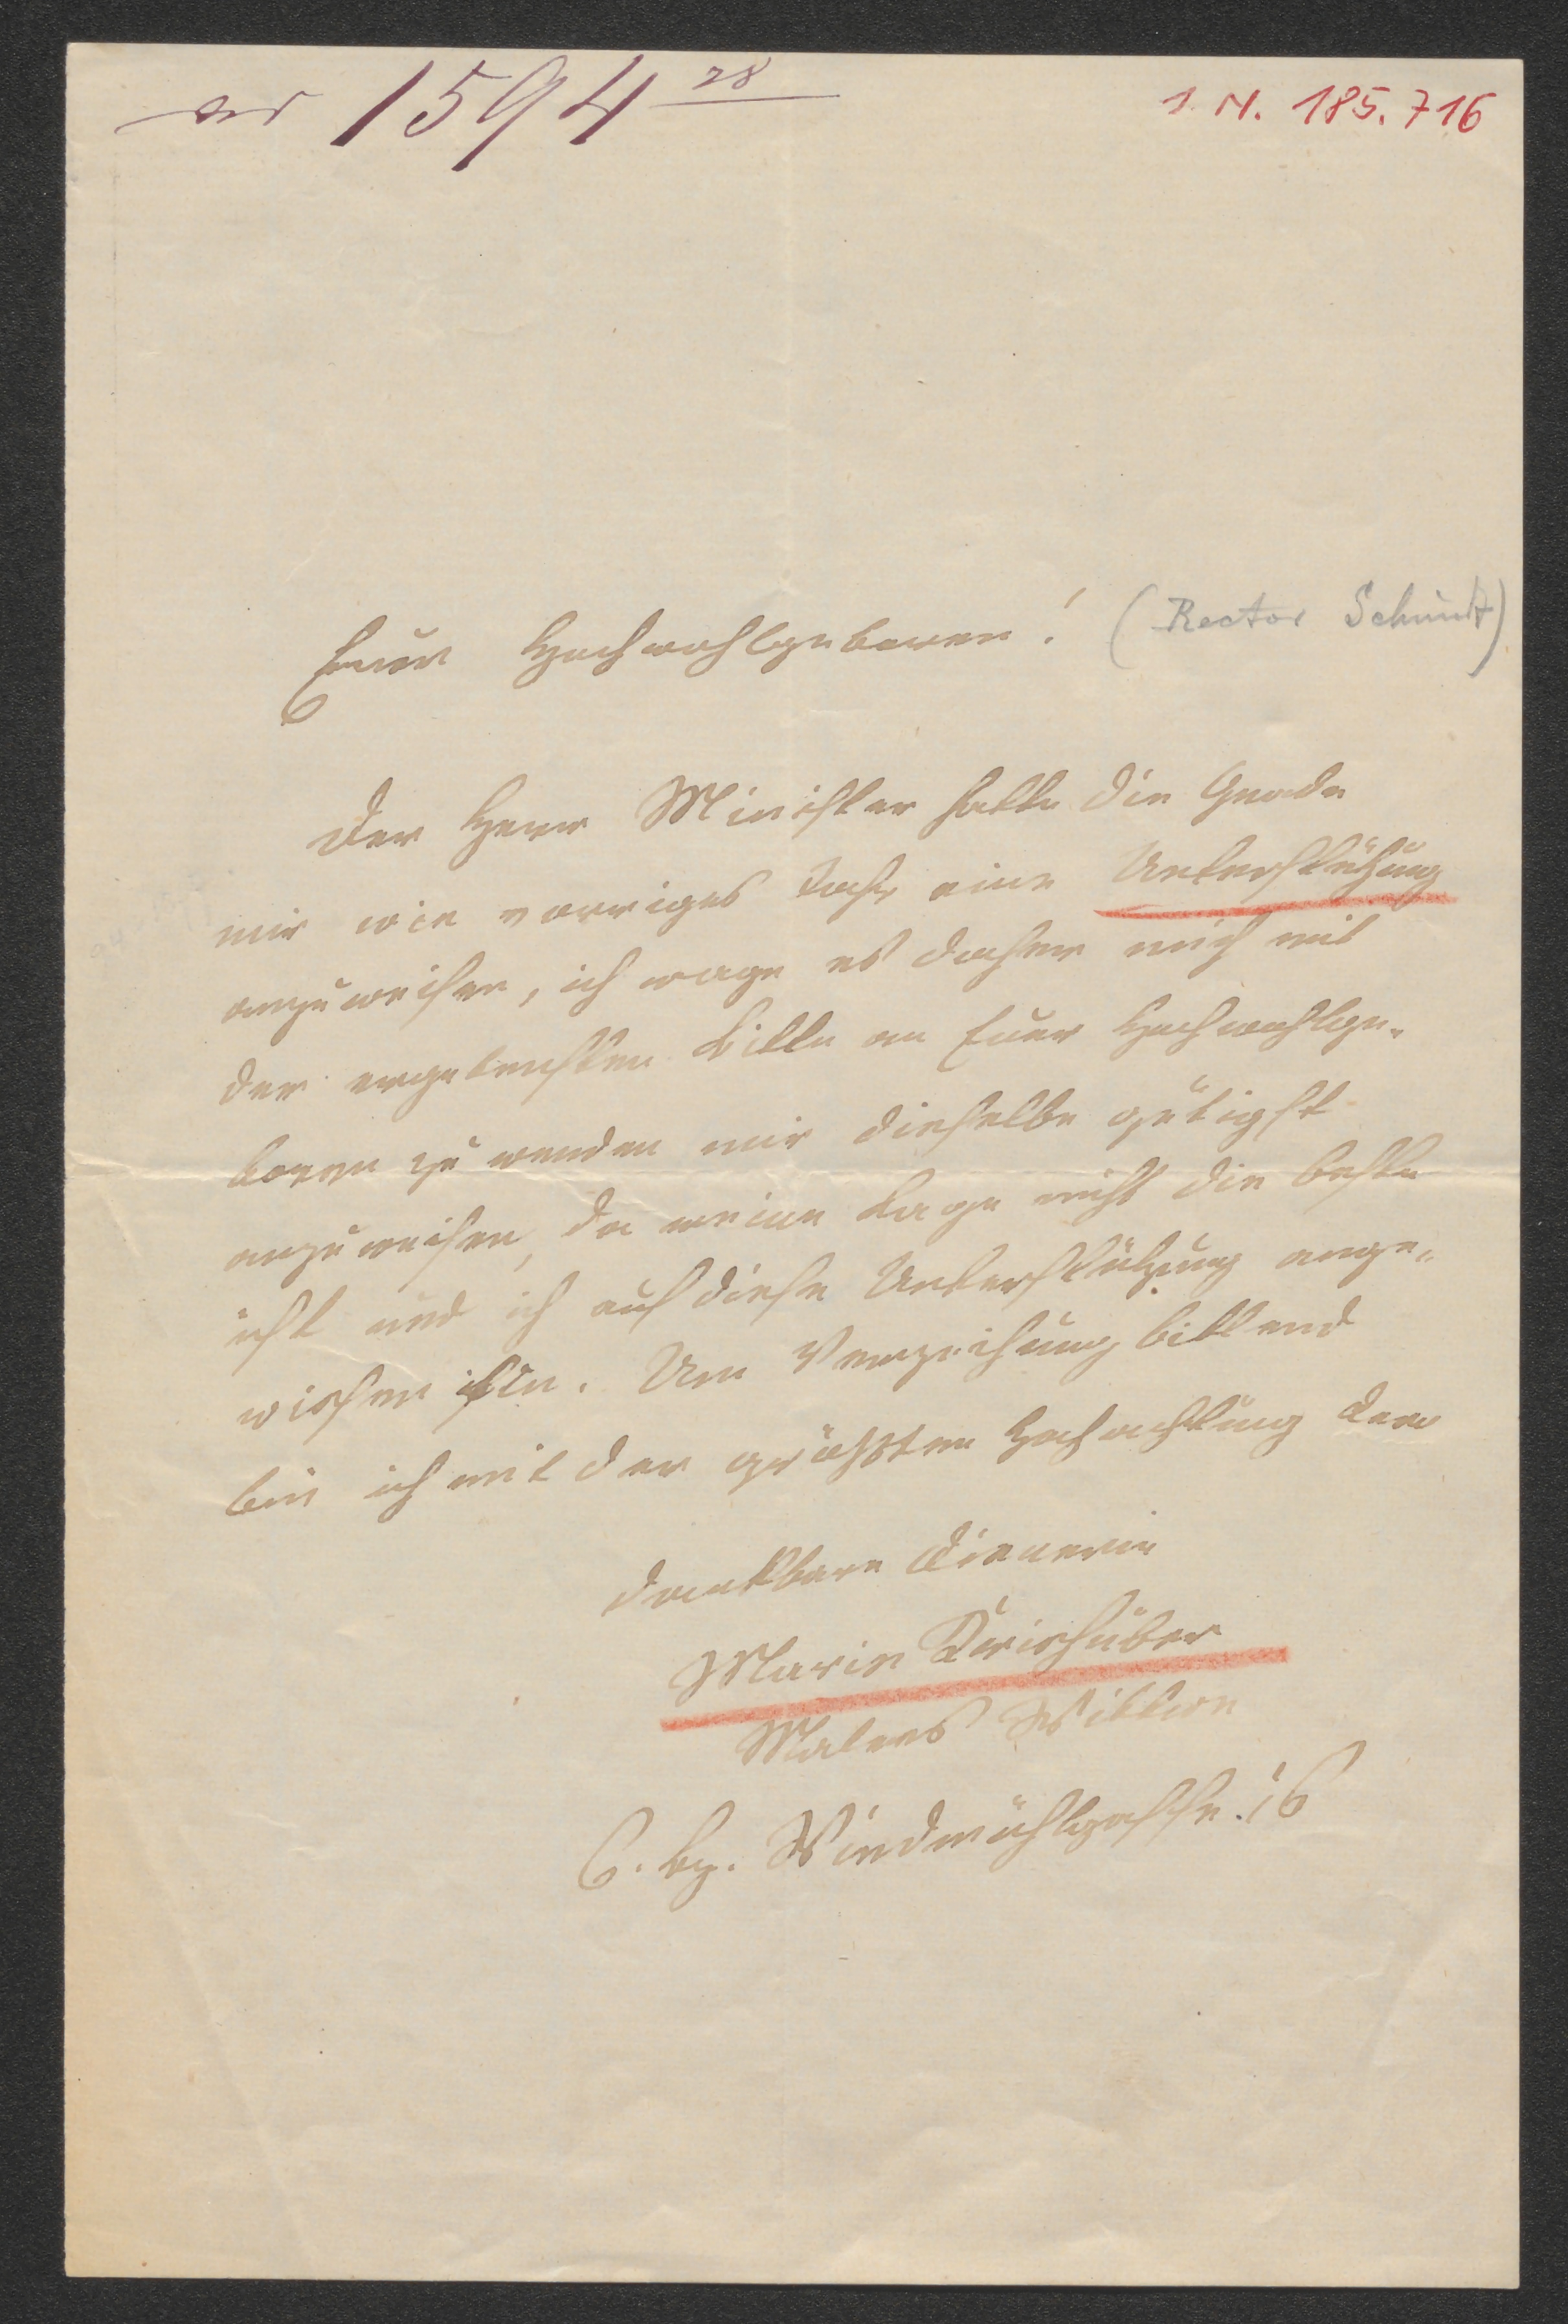 ad 1594 28
I. N. 185.716
Euer Hochwohlgeboren! (Rector Schmidt)
Der Herr Minister hatte die Gnade
mir wie vorriges Jahr eine Unterstützung
anzuweisen, ich wage es daher mich mit
der ergebensten Bitte an Euer Hochwohlge-
boren zu wenden mir dieselbe gütigst
anzuweisen, da meine Lage nicht die beste
ist und ich auf diese Unterstützung ange-
wiesen bin. Um Verzeihung bittend
bin ich mit der größten Hochachtung Dero
dankbare Dienerin
Marie Kriehuber
Malers Wittwe
6. Bz. Windmühlgasse. 16